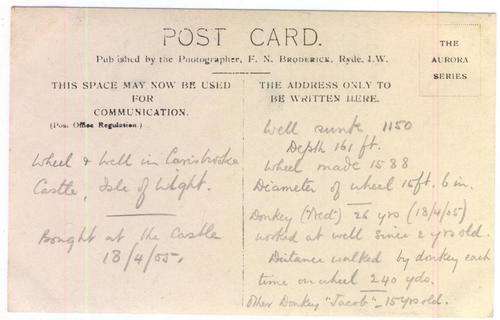 POST CARD.
Published by the Photographer, F. N. BRODERICK, Ryde, I.W.
THE
AURORA
SERIES
THIS SPACE MAY NOW BE USED
FOR
COMMUNICATION.
(Post Office Regulation.)
Wheel & Well in Carisbrooke
Castle, Isle of Wight.
Bought at the Castle
18/4/05.
THE ADDRESS ONLY TO
BE WRITTEN HERE.
Well sunk 1150
Depth 161 ft.
Wheel made 1588
Diameter of wheel 15ft. 6 in.
Donkey ("Ned") 26 yrs (18/4/05)
worked at well since 2 yrs old.
Distance walked by donkey each
time on wheel 240 yds.
Other Donkey "Jacob" – 15 yrs old.